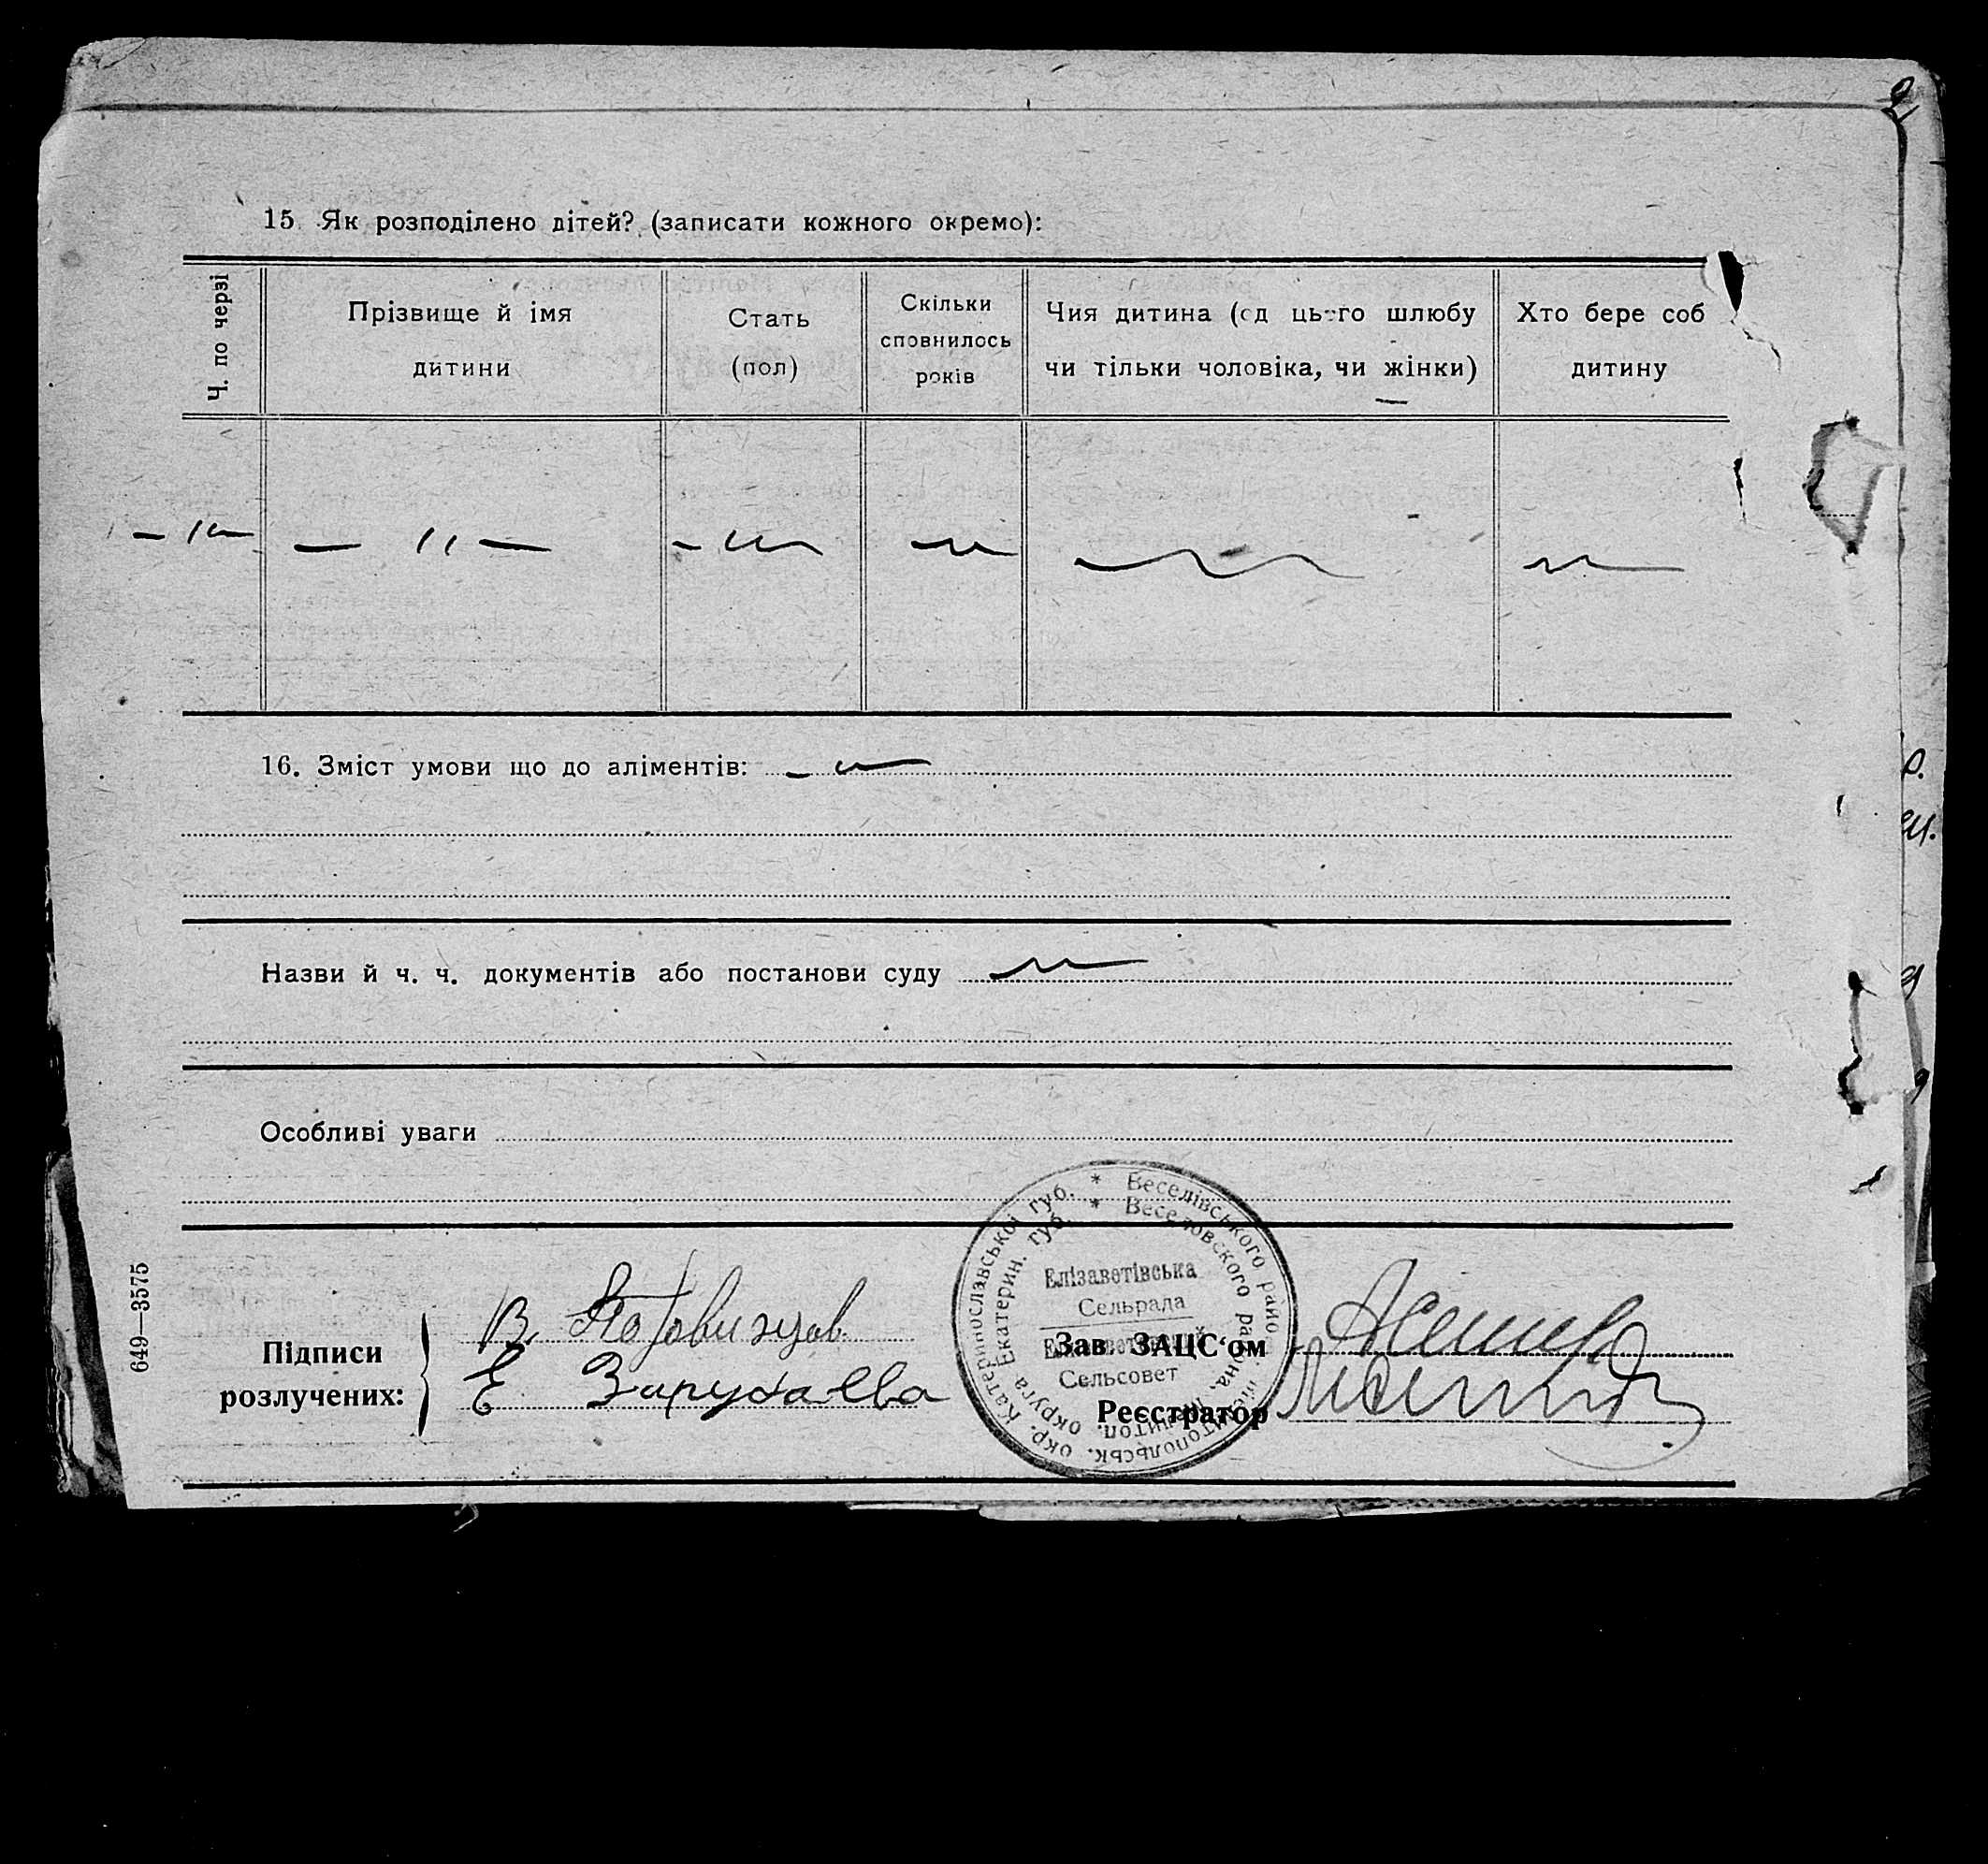 15. Як розподілено дітей? (записати кожного окремо):
Ч. по черзі
Прізвище й імя
дитини
Стать
(пол)
Скільки
сповнилось
років
Чия дитина (од цього шлюбу
чи тільки чоловіка, чи жінки)
Хто бере соб
дитину
— " —
16. Зміст умови що до аліментів:
Назви й ч. ч. документів або постанови суду
Особливі уваги
Підписи
розлучених:
В.
Е Зарудаева
Зав. ЗАЦС‘ом
Реєстратор
Катеринославської губ. * Веселівського райо
окр.
Екатерин. губ. * Веселовского района,
округа
Елізаветівська
Сельрада
Сельсовет
649—3575